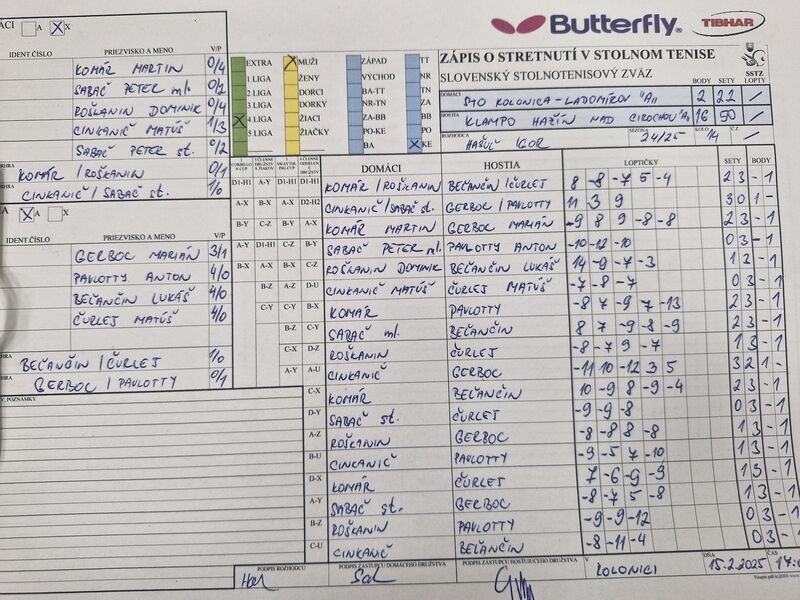 Butterfly TIBHAR
ZÁPIS O STRETNUTÍ V STOLNOM TENISE
SLOVENSKÝ STOLNOTENISOVÝ ZVÄZ
SSTZ
A X
IDENT.ČÍSLO PRIEZVISKO A MENO V/P
KOMÁR MARTIN 0/4
SABAČ PETER ml. 0/2
ROŠKANIN DOMINIK 0/4
CINKANIČ MATÚŠ 1/3
SABAČ PETER st. 0/2
KOMÁR / ROŠKANIN 0/1
CINKANIČ / SABAČ st. 1/0
A X
IDENT.ČÍSLO PRIEZVISKO A MENO V/P
GERBOC MARIÁN 3/1
PAVLOTTY ANTON 4/0
BEĽANČIN LUKÁŠ 4/0
ČURLEJ MATÚŠ 4/0
BEĽANČIN / ČURLEJ 1/0
GERBOC / PAVLOTTY 0/1
POZNÁMKY
EXTRA MUŽI ZÁPAD TT
1 LIGA ŽENY VÝCHOD NR
2 LIGA DORCI BA-TT TN
3 LIGA DORKY NR-TN ZA
4 LIGA ŽIACI ZA-BB BB
5 LIGA ŽIAČKY PO-KE PO
BA KE
DOMÁCI STO KOLONICA-LADOMÍROV "A" BODY 2 SETY 22 LOPTY /
HOSTIA KLAMPO HAŽÍN NAD CIROCHOU "A" 16 50 /
ROZHODCA HAŠUĽ IGOR SEZÓNA 24/25 KOLO 14 Č.Z. /
DOMÁCI HOSTIA LOPTIČKY SETY BODY
D1-H1 A-Y D1-H1 D1-H1 KOMÁR / ROŠKANIN BEĽANČIN / ČURLEJ 8 -8 -7 5 -4 2 3 - 1
A-X B-X A-X D2-H2 CINKANIČ / SABAČ st. GERBOC / PAVLOTTY 11 3 9 3 0 1 -
B-Y C-Z B-Y A-X KOMÁR MARTIN GERBOC MARIÁN -9 8 9 -8 -8 2 3 - 1
A-Y D1-H1 C-Z B-Y SABAČ PETER ml. PAVLOTTY ANTON -10 -12 -10 0 3 - 1
B-X A-X B-X C-Z ROŠKANIN DOMINIK BEĽANČIN LUKÁŠ 14 -9 -7 -3 1 2 - 1
B-Z A-Z D-U CINKANIČ MATÚŠ ČURLEJ MATÚŠ -7 -8 -7 0 3 - 1
C-Y C-Y B-X KOMÁR PAVLOTTY -8 7 -9 7 -13 2 3 - 1
B-Z C-Y SABAČ ml. BEĽANČIN 8 7 -9 -8 -9 2 3 - 1
C-X D-Z ROŠKANIN ČURLEJ -8 -7 9 -7 1 3 - 1
A-Y A-U CINKANIČ GERBOC -11 10 -12 3 5 3 2 1 -
C-X KOMÁR BEĽANČIN 10 -9 8 -9 -4 2 3 - 1
D-Y SABAČ st. ČURLEJ -9 -9 -8 0 3 - 1
A-Z ROŠKANIN GERBOC -8 -8 8 -8 1 3 - 1
B-U CINKANIČ PAVLOTTY -9 -5 7 -10 1 3 - 1
D-X KOMÁR ČURLEJ 7 -6 -9 -9 1 3 - 1
A-Y SABAČ st. GERBOC -8 -7 5 -8 1 3 - 1
B-Z ROŠKANIN PAVLOTTY -9 -9 -12 0 3 - 1
C-U CINKANIČ BEĽANČIN -8 -11 -4 0 3 - 1
PODPIS ROZHODCU PODPIS ZÁSTUPCU DOMÁCEHO DRUŽSTVA PODPIS ZÁSTUPCU HOSŤUJÚCEHO DRUŽSTVA V KOLONICI DŇA 15.2.2025 ČAS